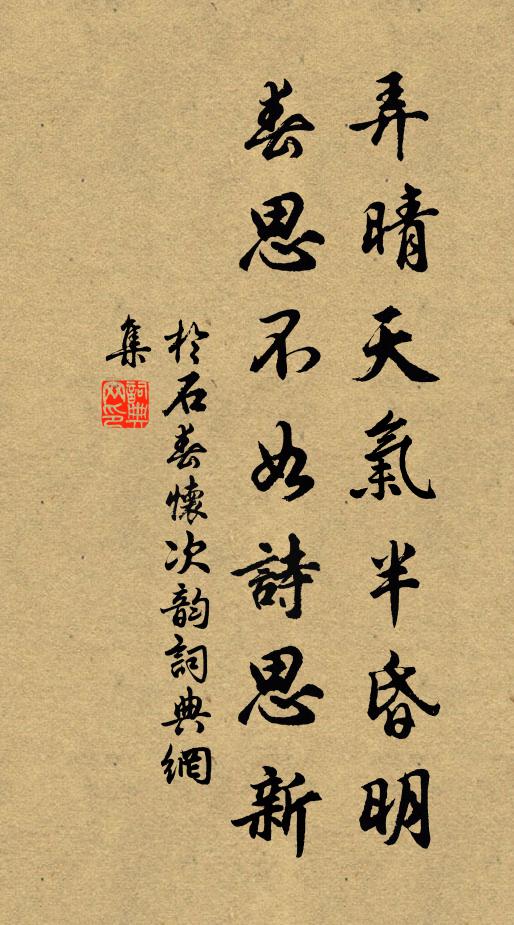 弄晴天氣半昏明
春思不如詩思新
於石春懷次韵詞典網
集
詞典
网印